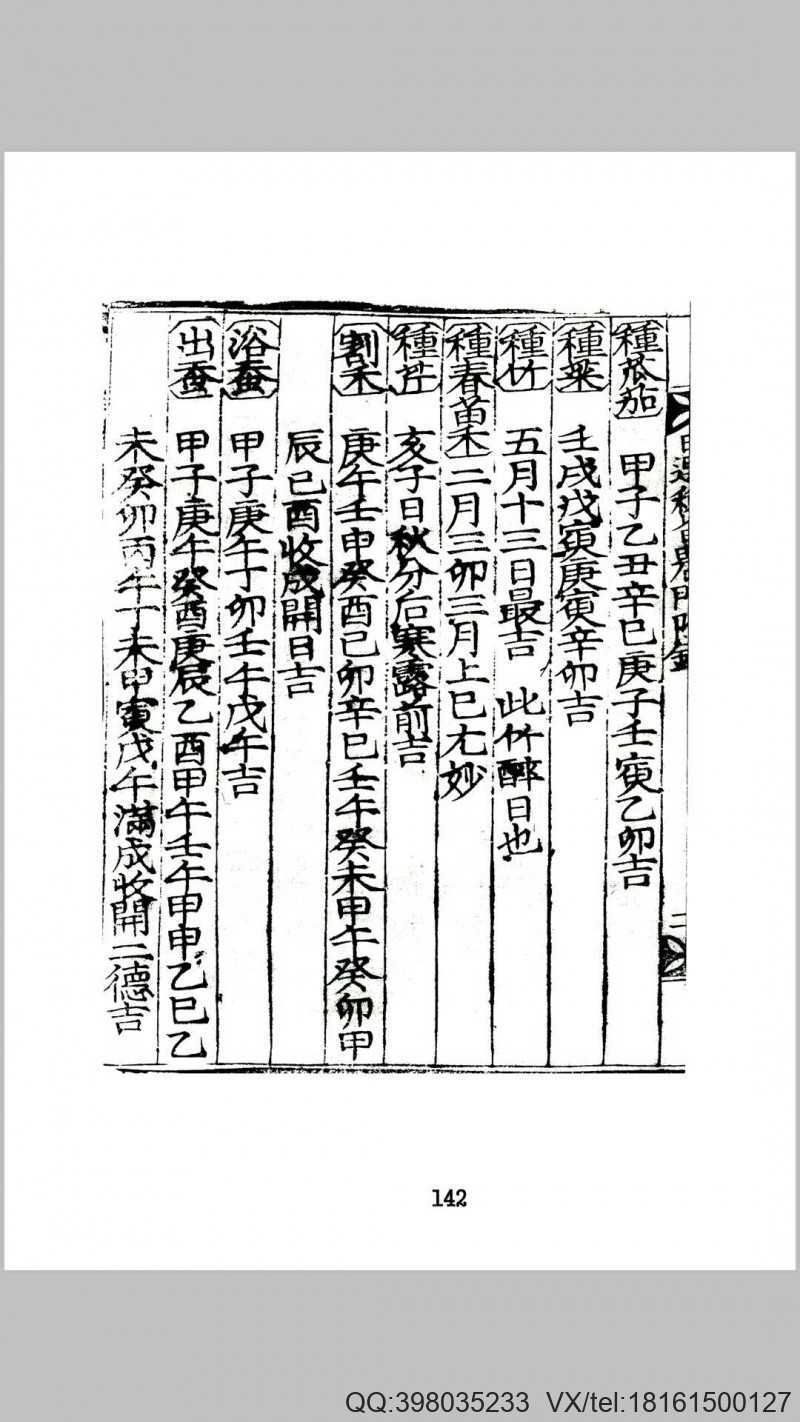 種瓜茄 甲子乙丑辛巳庚子壬寅乙卯吉
種菜 壬戌戊寅庚寅辛卯吉
種竹 五月十三日最吉 此竹醉日也
種春苗禾二月三卯三月上巳尤妙
種芹 亥子日秋分后寒露前吉
割禾 庚午壬申癸酉己卯辛巳壬午癸未甲午癸卯甲
辰己酉收成開日吉
浴蚕 甲子庚午丁卯壬午戊午吉
出蚕 甲子庚午癸酉庚辰乙酉甲午壬午甲申乙巳乙
未癸卯丙午丁未甲寅戊午滿成收開二德吉
142
QQ:398035233 VX/tel:18161500127